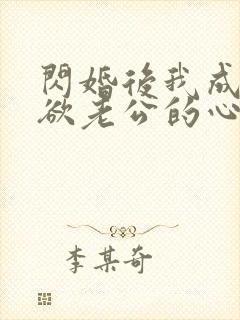 閃婚後我成
欲老公的心
李某奇